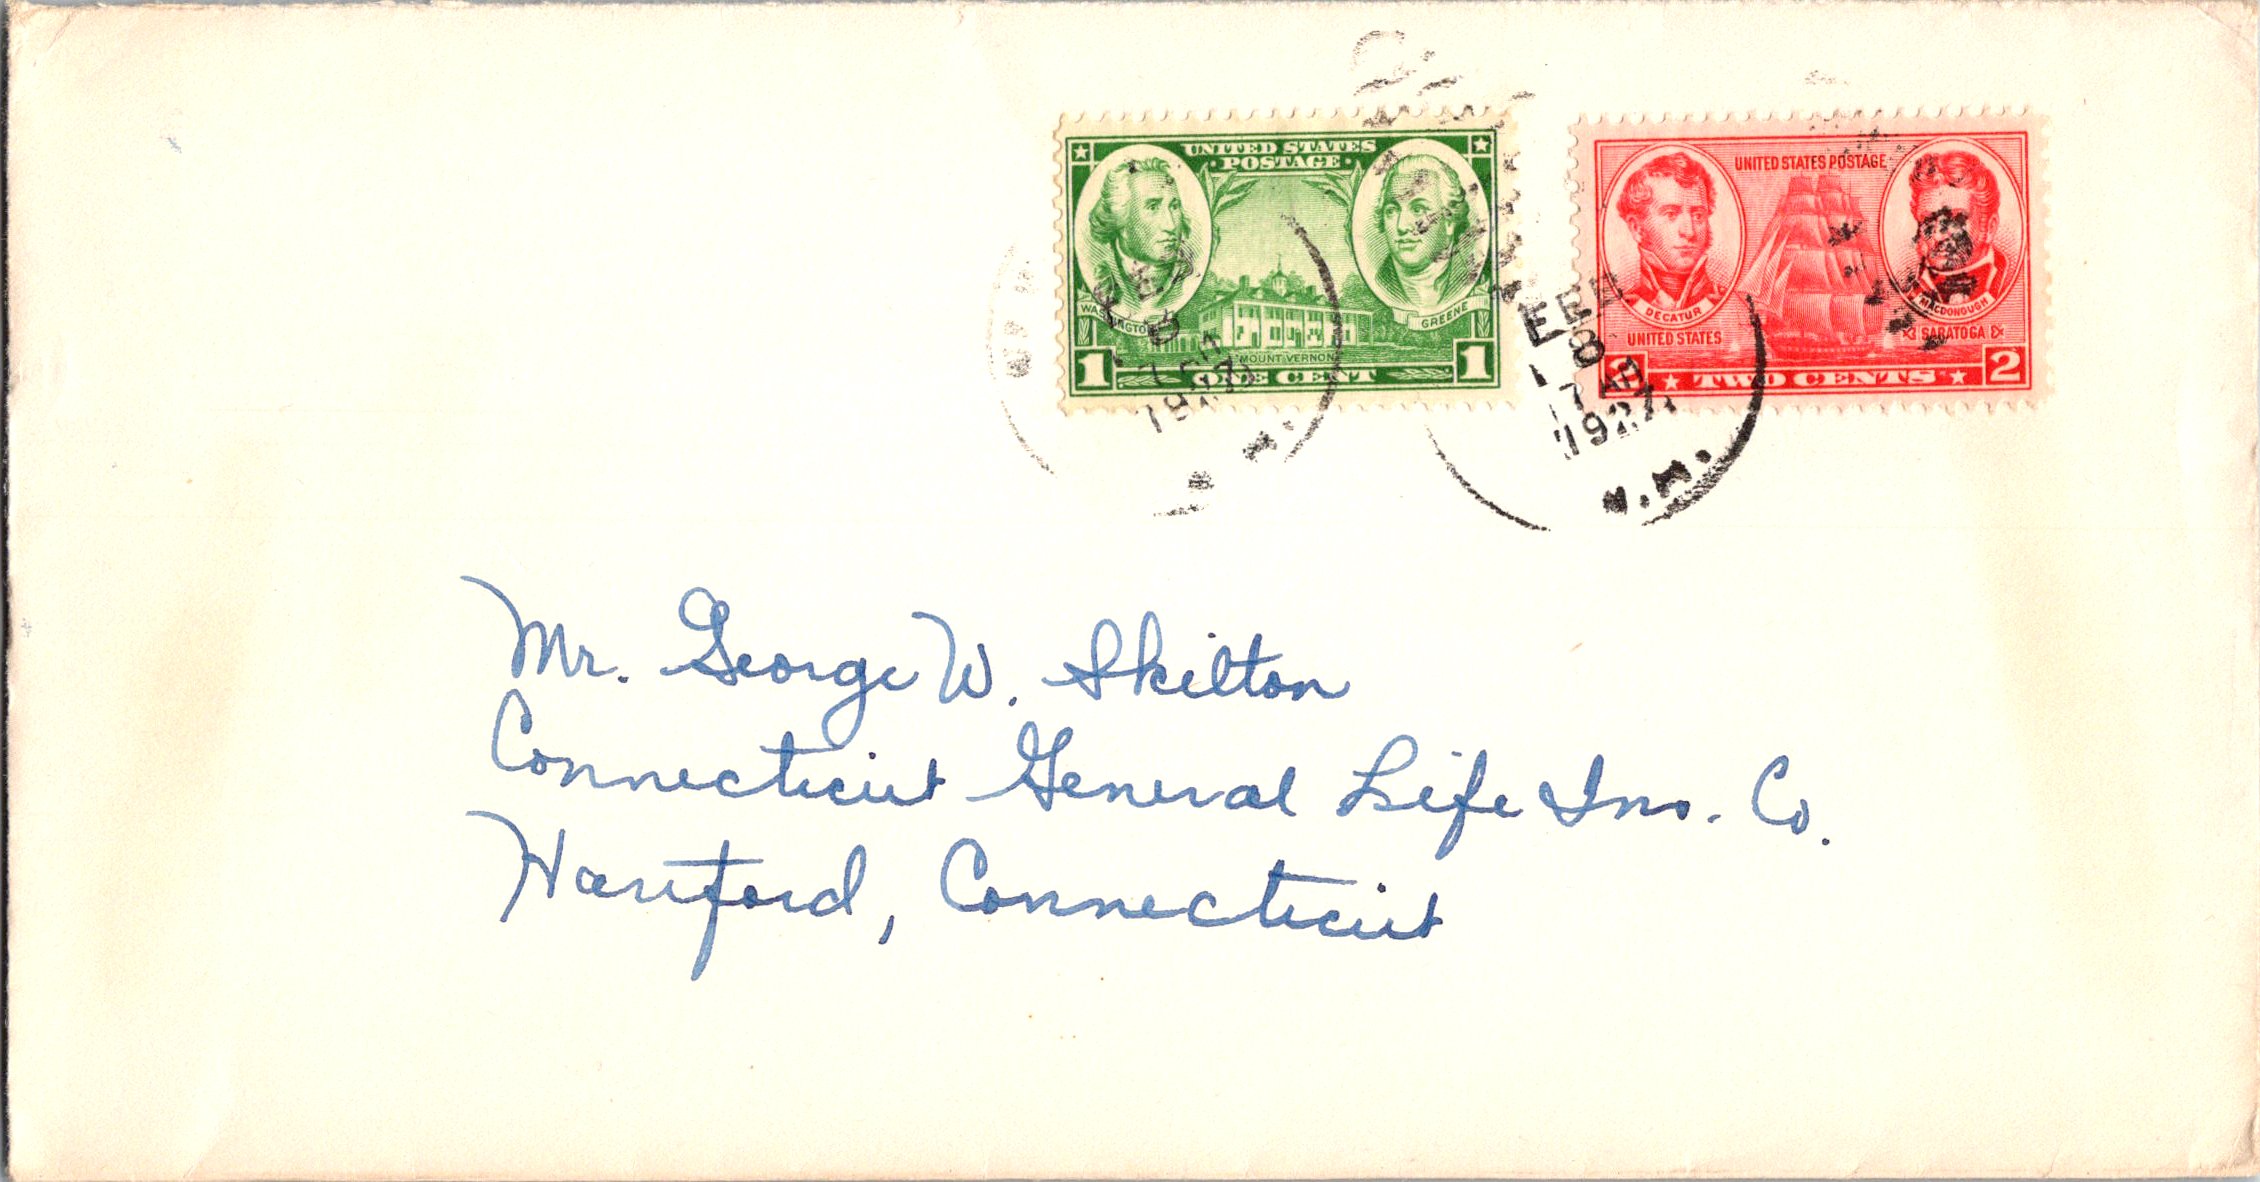 UNITED STATES
POSTAGE
WASHINGTON
GREENE
MOUNT VERNON
1 ONE CENT 1
UNITED STATES POSTAGE
DECATUR
MACDONOUGH
UNITED STATES
SARATOGA
2 TWO CENTS 2
FEB
8
7 AM
Mr. George W. Skilton
Connecticut General Life Ins. Co.
Hartford, Connecticut